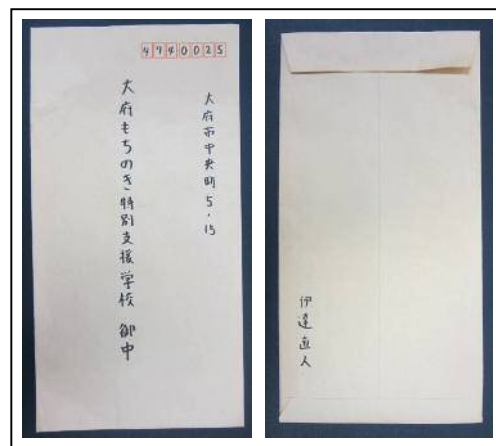 4740025
大府市中央町5.15
大府もちのき特別支援学校 御中
伊達直人